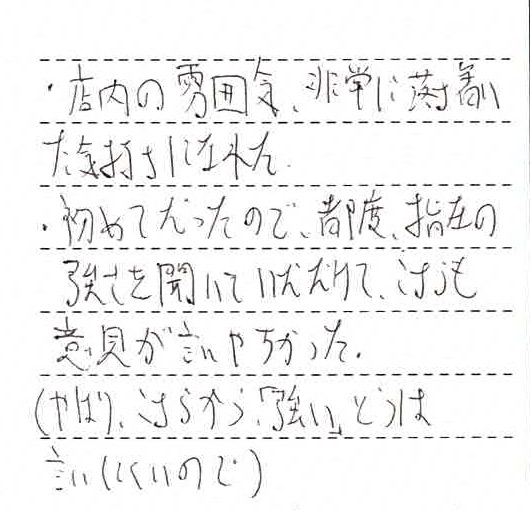 ・店内の雰囲気、非常に落ち着い
た気持ちになれた.
・初めてだったので、都度、指圧の
強さを聞いていただけて、こちらも
意見が言いやすかった.
(やはり、こちらから、「強い」とうは
言いにくいので)